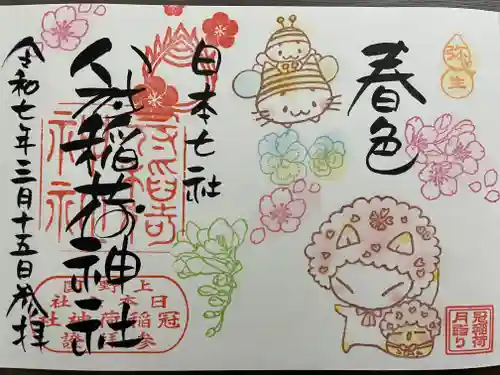 弥生
春色
冠稲荷
月詣り
日本七社
冠稲荷神社
令和七年三月十五日参拝
上野国
冠稲荷神社